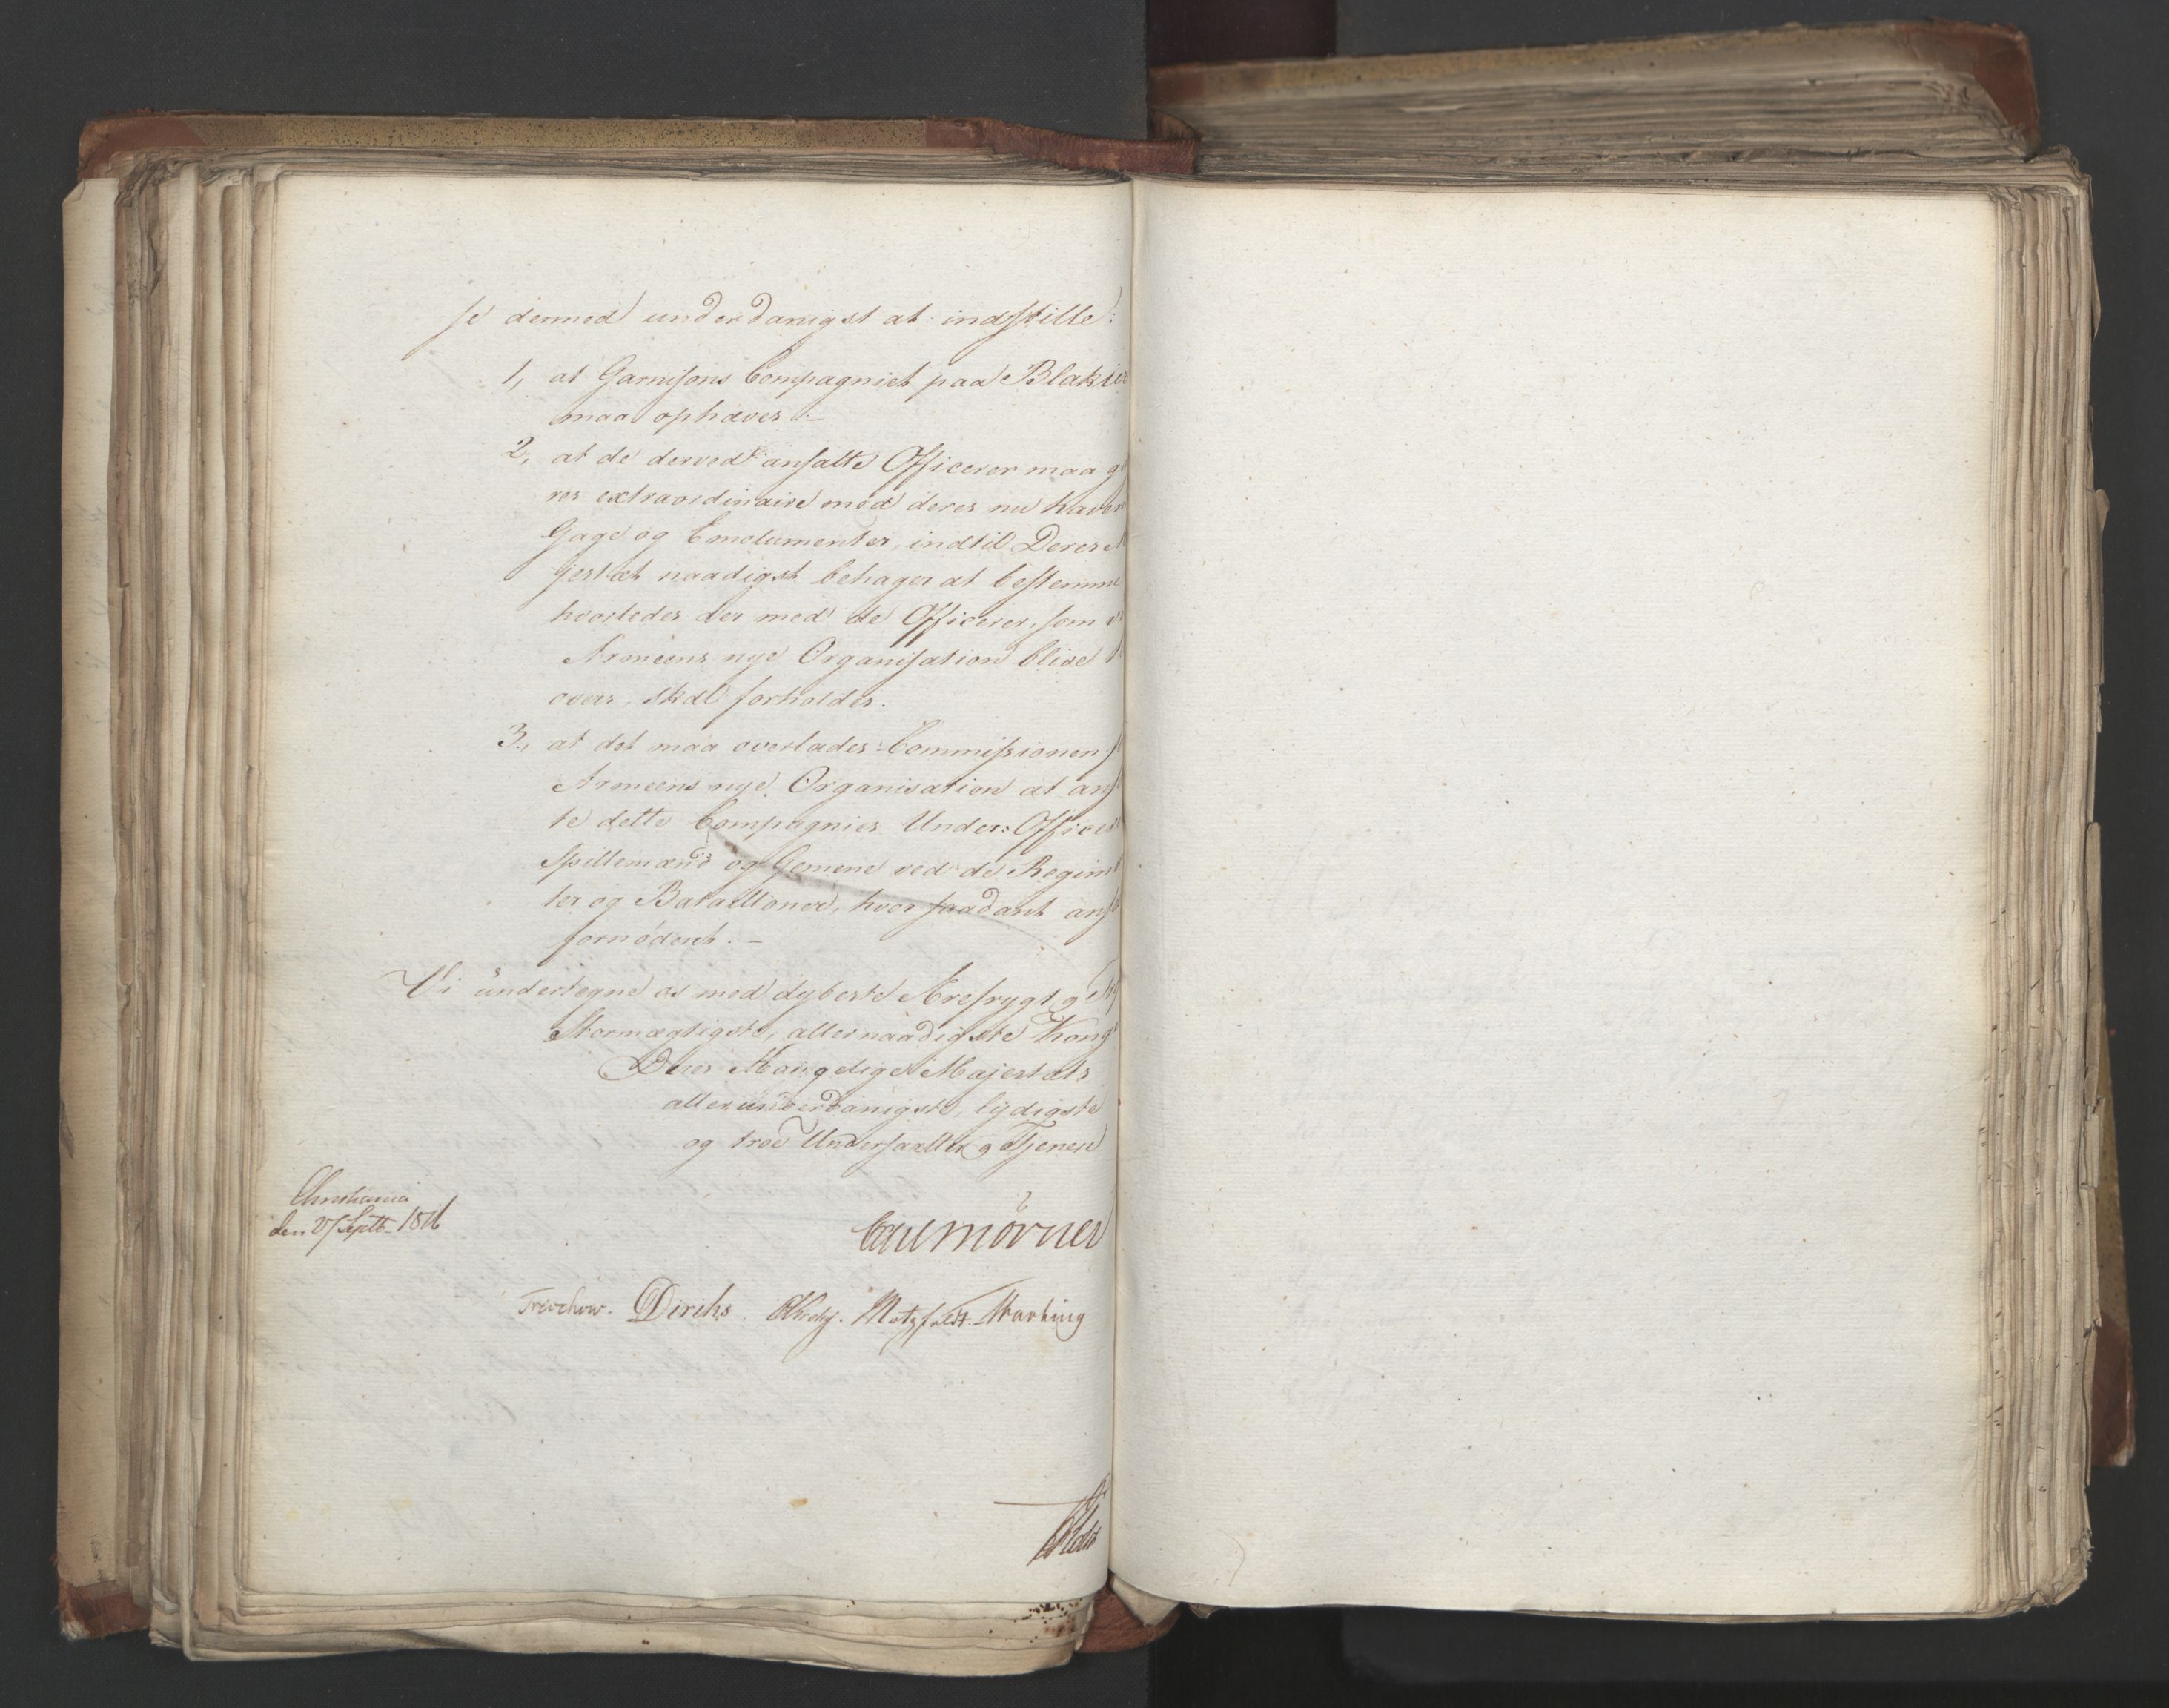 se dermed underdanigst at indstille:
1, at Garnisons Compagniet paa Blakier
maa ophæves.–
2, at de derved ansatte Officerer maa
res extraordinaire med deres nu haven
Gage og Emolumenter, indtil Deres
jestæt naadigst behager at bestemme
hvorledes der med de Officerer, som
Armeens nye Organisation blive
overs, skal forholdes.
3, at det maa overlades Commissionen
Armeens nye Organisation at ans
te dette Compagnies Under-Officer
Spillemænd og Gemene ved de Regim
ter og Batailloner, hvor saadant ans
fornødent.–
Vi undertegne os med dybeste Ærefrygt,
Stormægtigste, allernaadigste Konge
Deres Kongelige Majestæts
allerunderdanigste, lydigste
og troe Undersaatter og Tjenere
Christiania
den 27 Septb. 1816
Carl Mörner
Treschow. Diriks. Krohg. Motzfeldt. Starking
Holst